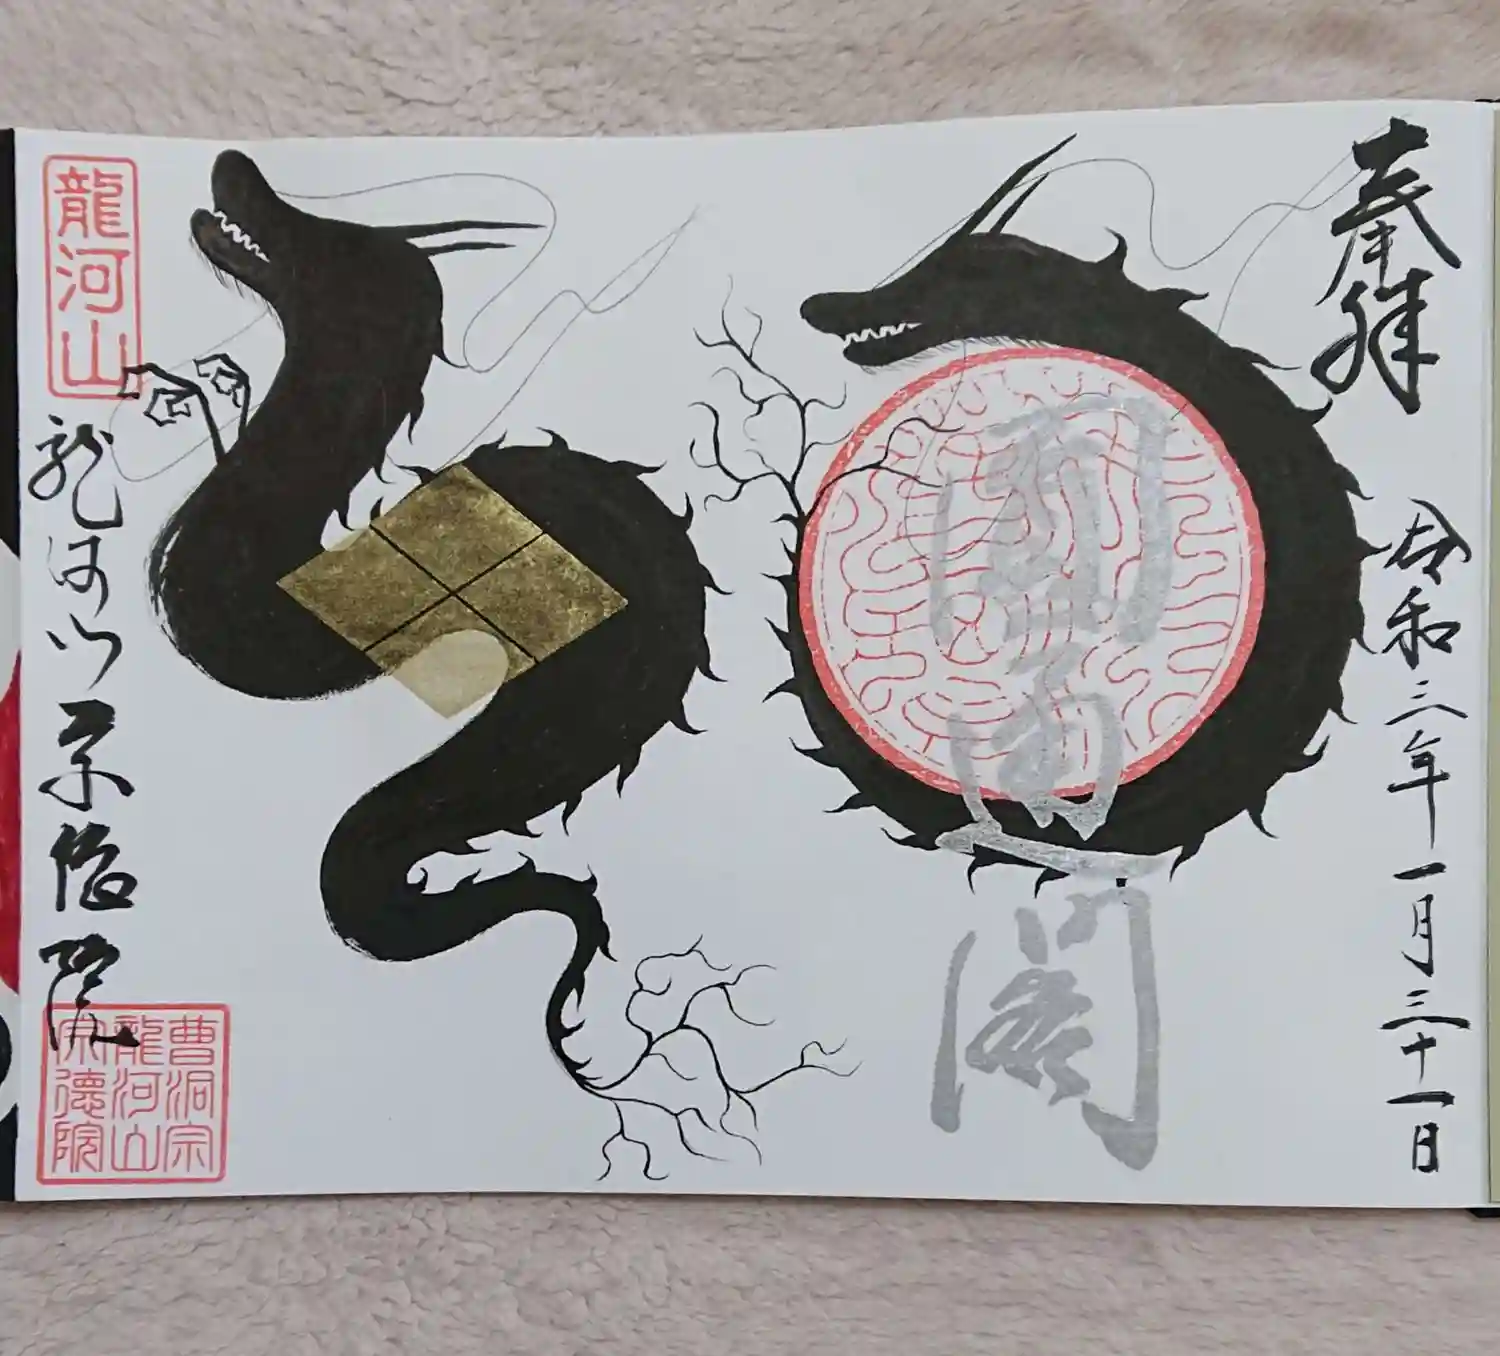 奉拝
令和三年一月三十一日
龍河山
龍河山宗徳院
曹洞宗
龍河山
宗徳院